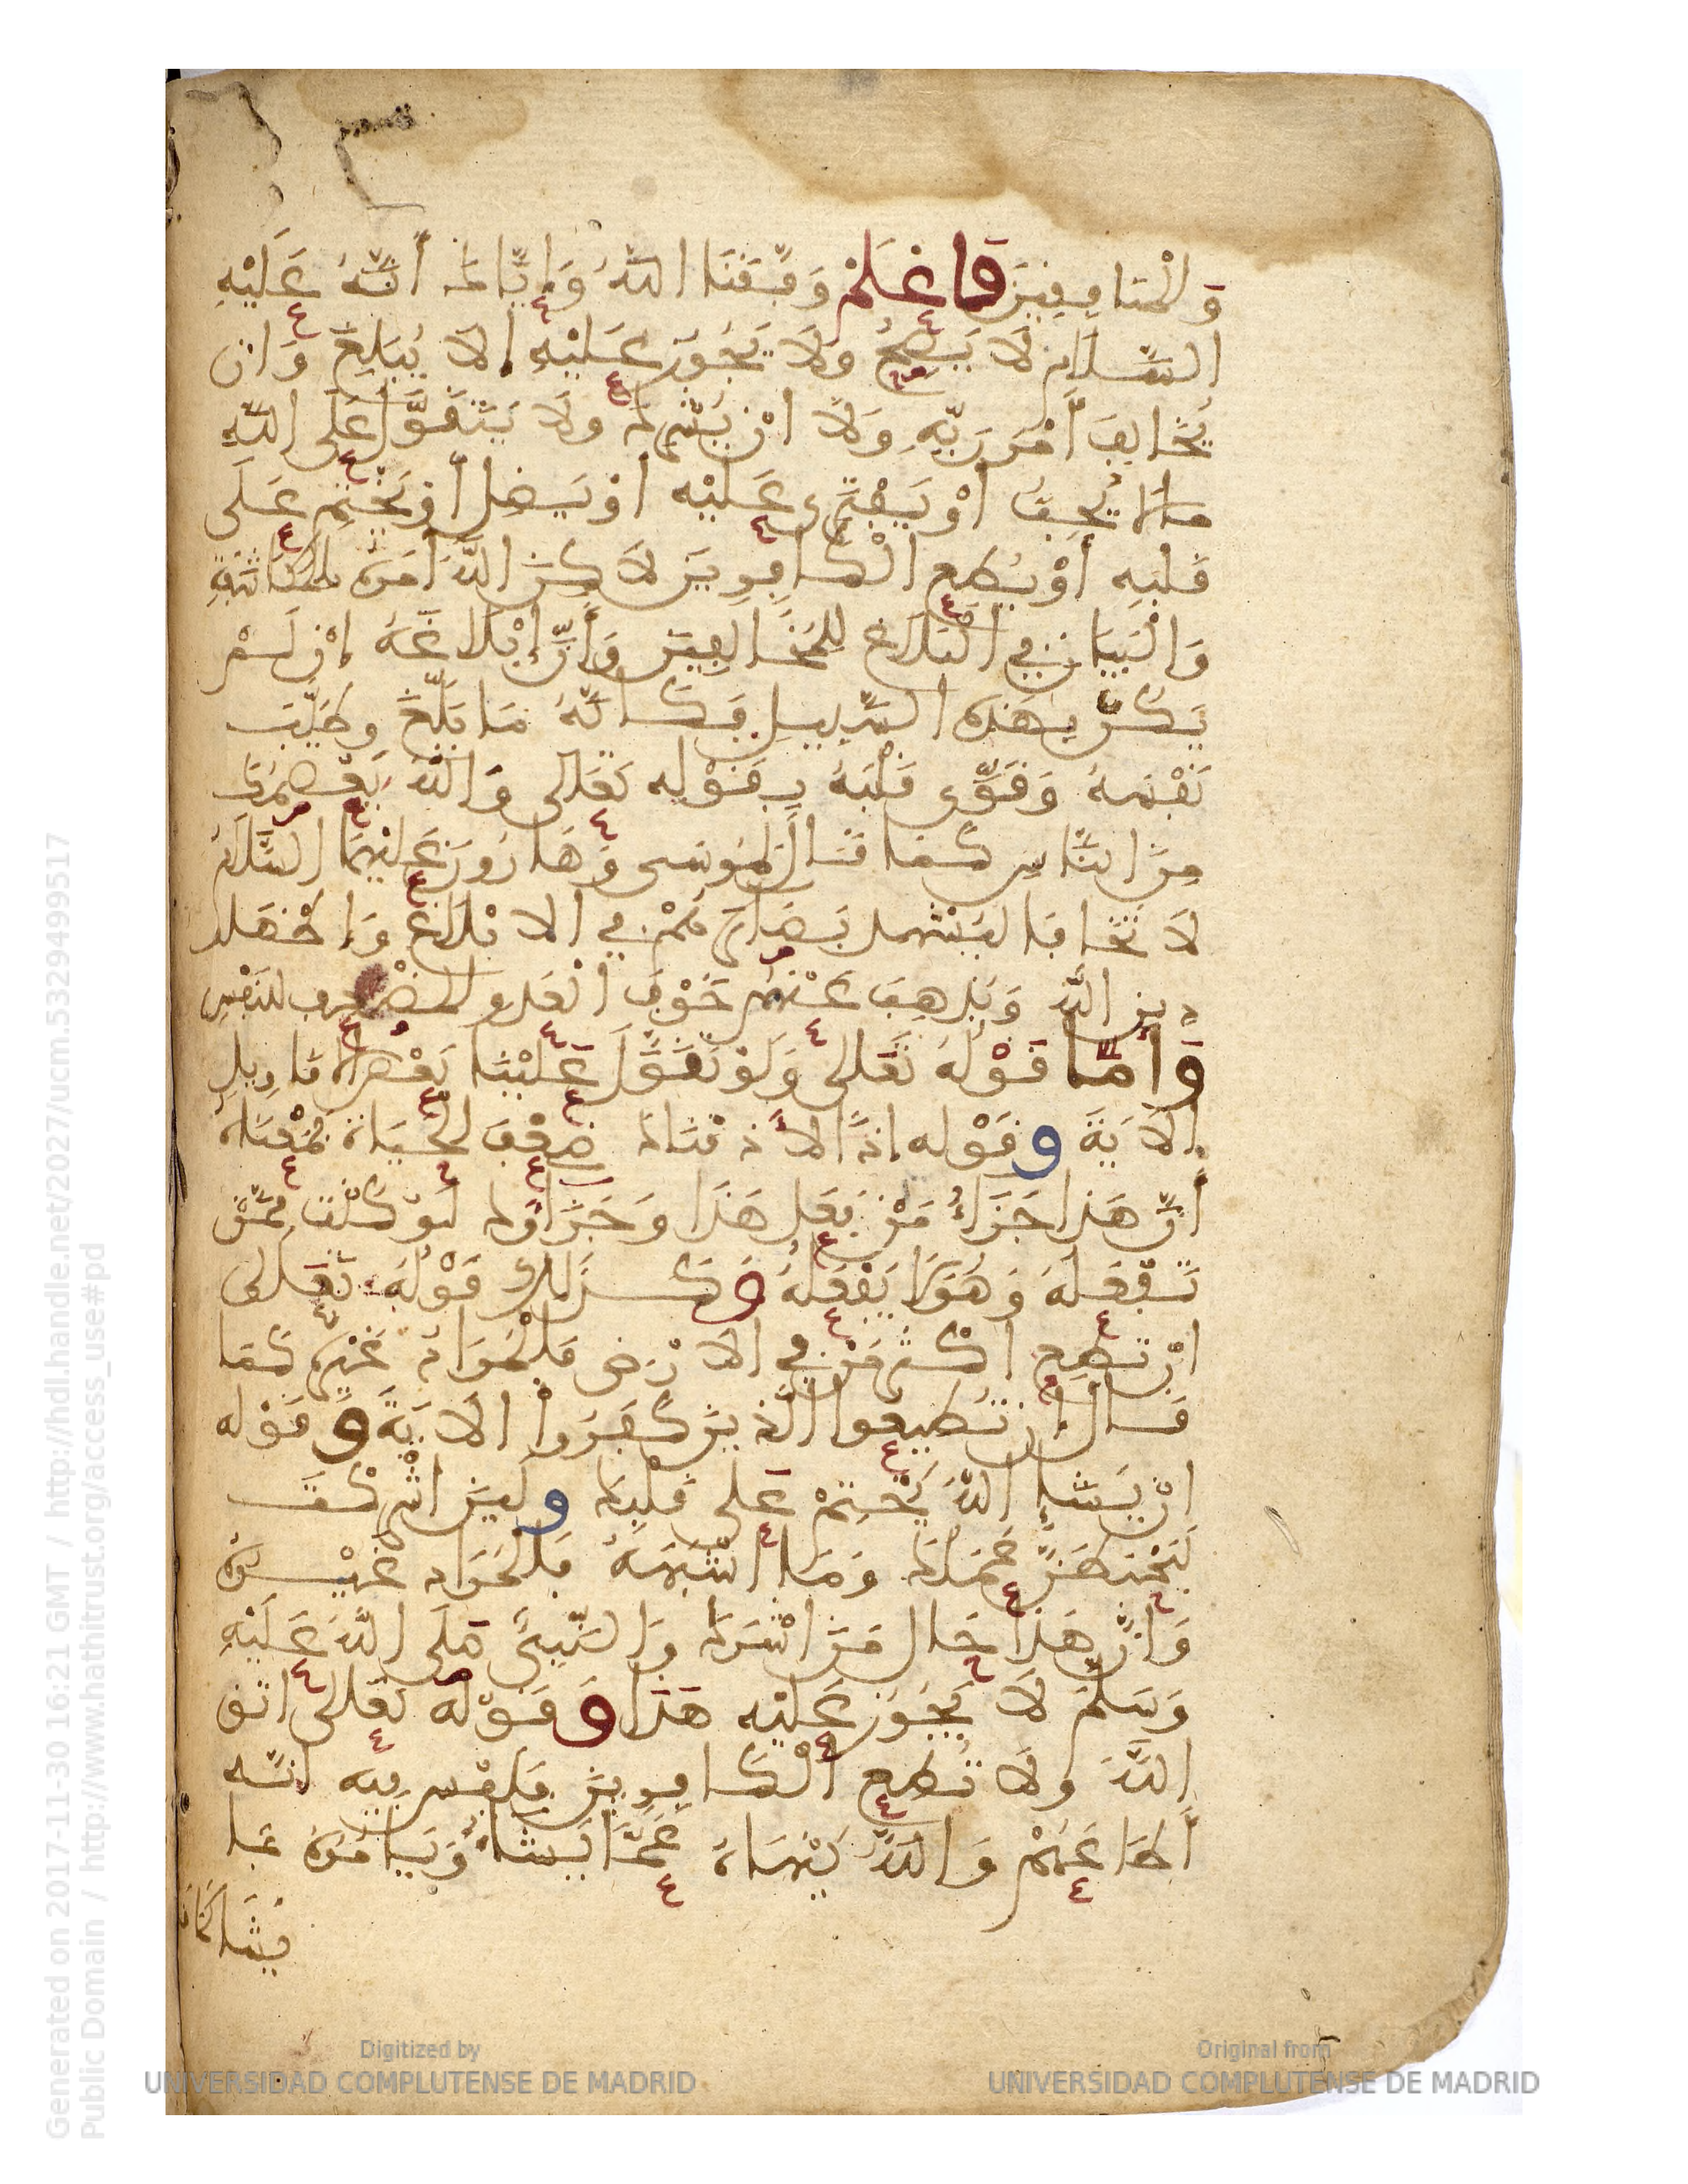 وَالْمُنَافِقِينَ فَاعْلَمْ وَفَّقَنَا اللَّهُ وَإِيَّاكَ أَنَّهُ عَلَيْهِ
السَّلَامُ لَا يَصِحُّ وَلَا يَجُوزُ عَلَيْهِ إلا يُبَلِّغَ وَان
يُخَالِفَ أَمْرَ رَبِّهِ وَلَا انْ يُشْرِكَ وَلَا يَتَقَوَّلَ عَلَى اللَّهِ
مَا لَا يُحِبُّ أَوْ يَفْتَرِيَ عَلَيْهِ أوْ يَضِلَّ أوْ يَخْتِمَ عَلَى
قَلْبِهِ أوْ يُطِيعَ الْكَافِرِينَ لَاكِنَّ اللَّهَ أمَرَهُ
وَالْبَيَانِ فِي الْبَلَاغِ لِلْمُخَالِفِينَ وَأَنَّ إِبْلَاغَهُ إِنْ لَمْ
يَكُنْ بِهَذِهِ السَّبِيلِ فَكَأَنَّهُ مَا بَلَّغَ وطَيَّبَ
نَفْسَهُ وَقَوَّى قَلْبَهُ بِقَوْلِهِ تَعَالَى وَاللَّهُ يَعْصِمُكَ
مِنَ النَّاسِ كَمَا قَالَ لِمُوسَى وَهَارُونَ عَلَيْهِمَا السَّلَامُ
لَا تَخَافَا لِتَشْتَدَّ بَصَائِرُهُمْ فِي الابْلَاغِ وَإظْهَار
دِينِ اللَّهِ وَيَذْهَبَ عَنْهُمْ خَوْفُ الْعَدُو الْمُضْعِفِ لِلنَّفْسِ
وَأَمَّا قَوْلُهُ تَعَالَى وَلَوْ تَقَوَّلَ عَلَيْنَا بَعْضَ الْأَقَاوِيلِ
الْآيَةَ وقَوْله إذًا لأَذَقْنَاكَ ضِعْفَ الْحَيَاةِ فَمَعْنَاهُ
أَنَّ هَذَا جَزَاءُ مَنْ فَعَلَ هَذَا وَجَزَاؤُكَ لَوْ كُنْتَ مِمَّنْ
يَفْعَلُهُ وَهُوَ لَا يَفْعَلُهُ وَكَذَلِكَ قَوْلُهُ تَعَالَى
إنْ تُطِعْ أكْثَرَ مَنْ فِي الارْضِ فَالْمُرَادُ غَيْرُهُ كَمَا
قَالَ إن تُطِيعُوا الَّذِينَ كَفَرُوا الْآيَةَ وَقَوْله
إنْ يَشَإِ اللَّهُ يَخْتِمْ عَلَى قَلْبِكَ ولَئِنْ أشْرَكْتَ
لَيَحْبَطَنَّ عَمَلُكَ وَمَا أشْبَهَهُ فَالْمُرَادُ غَيْرُهُ
وَأَنَّ هَذَا حَال مَنْ أشْرَكَ وَالنَّبِيُّ صَلَّى اللَّهُ عَلَيْهِ
وَسَلَّمَ لَا يَجُوزُ عَلَيْهِ هَذَا وَقَوْلُهُ تَعَالَى اتَّقِ
اللَّهَ وَلَا تُطِعِ الْكَافِرِينَ فَلَيْسَ فِيهِ أنَّه
أطَاعَهُمْ وَاللَّهُ يَنْهَاهُ عَمَّا يَشَاءُ وَيَأْمُرُهُ بِمَا
يَشَاءُ كَمَا
Generated on 2017-11-30 16:21 GMT / http://hdl.handle.net/2027/ucm.5329499517
Public Domain / http://www.hathitrust.org/access_use#pd
Digitized by
UNIVERSIDAD COMPLUTENSE DE MADRID
Original from
UNIVERSIDAD COMPLUTENSE DE MADRID